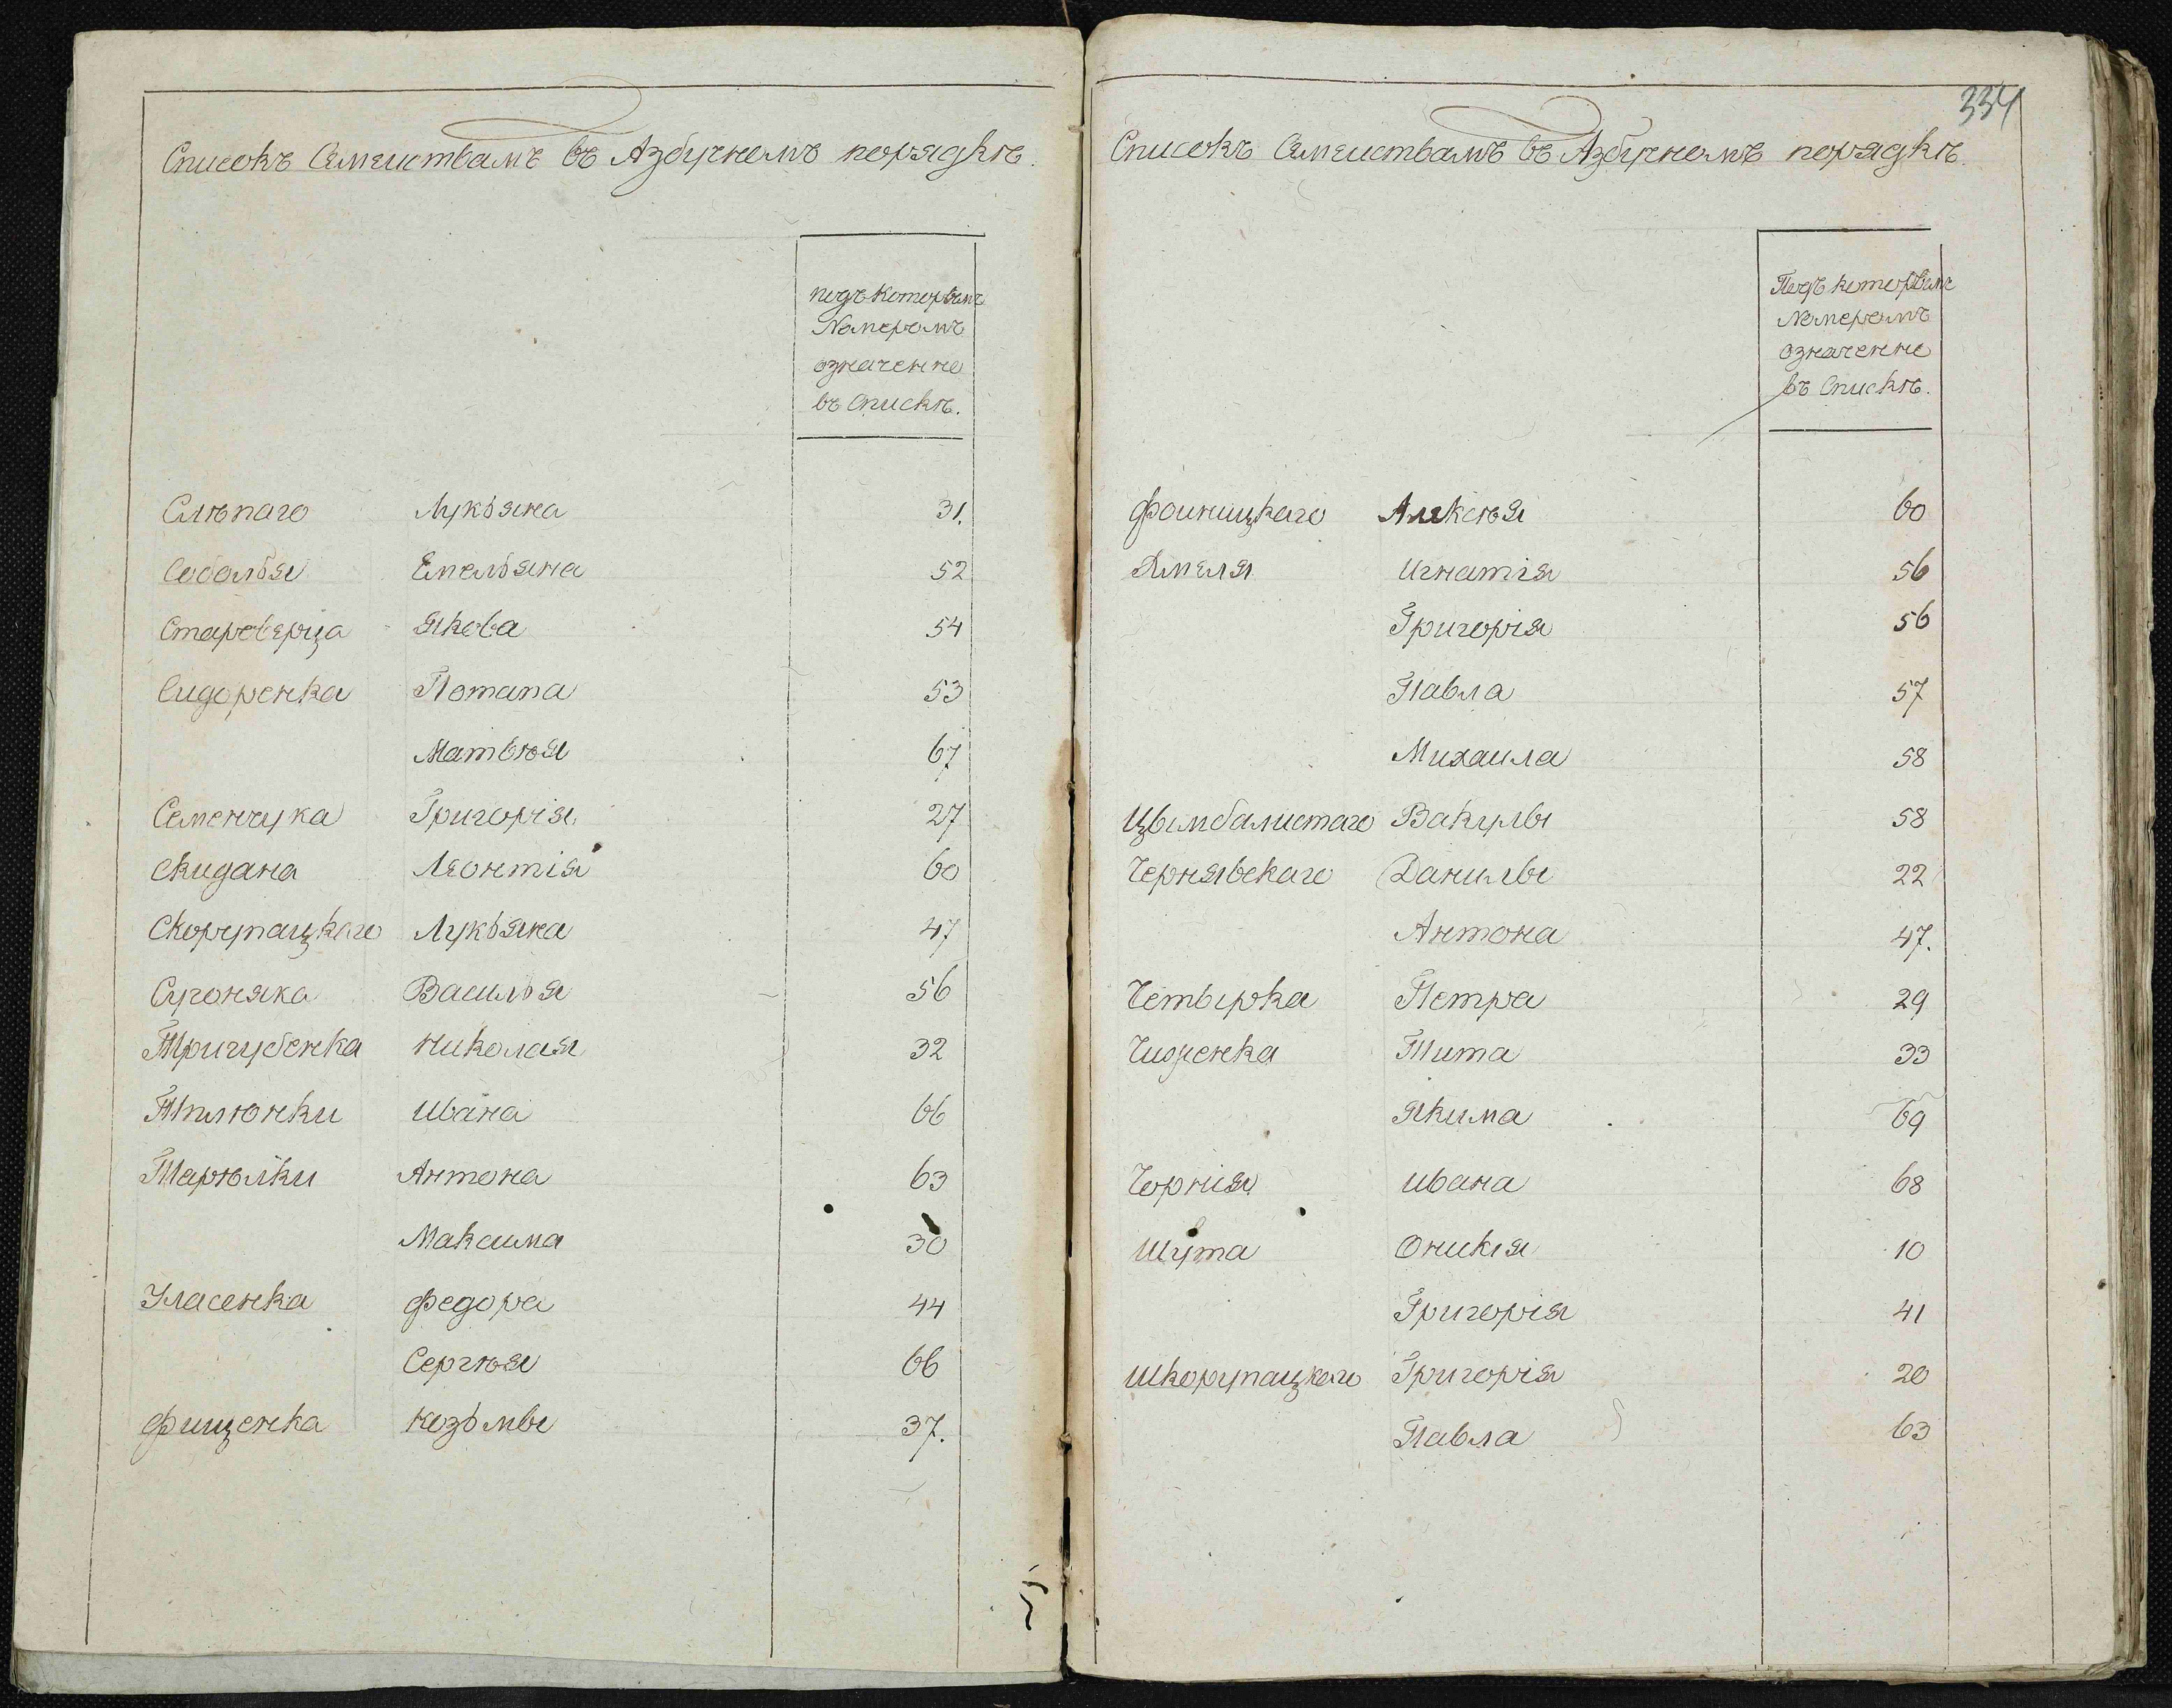 Списокъ Семеиствамъ въ Азбучномъ порядкѣ.
подъ которымъ
Номеромъ
означенно
въ Спискѣ.
Слѣпаго Лукьяна 31.
Соболья Емельяна 52
Староверца Якова 54
Сидоренка Потапа 53
Матвѣя 67
Семенчука Григорія 27
Скидана Леонтія 60
Скорупацкаго Лукьяна 47
Сугоняка Василья 56
Тригубенка Николая 32
Тпилюнки Ивана 66
Тарѣлки Антона 63
Максима 30
Уласенка Федора 44
Сергѣя 66
Фищенка Козьмы 37.
334
Списокъ Семеиствамъ въ Азбучномъ порядкѣ.
Подъ которымъ
Номеромъ
означенно
въ Спискѣ.
Фоиницкаго Алексѣя 60
Хмеля Игнатія 56
Григорія 56
Павла 57
Михаила 58
Цымбалистаго Вакулы 58
Чернявскаго Данилы 22
Антона 47.
Четырка Петра 29
Тита 33
Якима 69
Чорния Ивана 68
Шута Оникія 10
Григорія 41
Шкорупацкаго Григорія 20
Павла 63